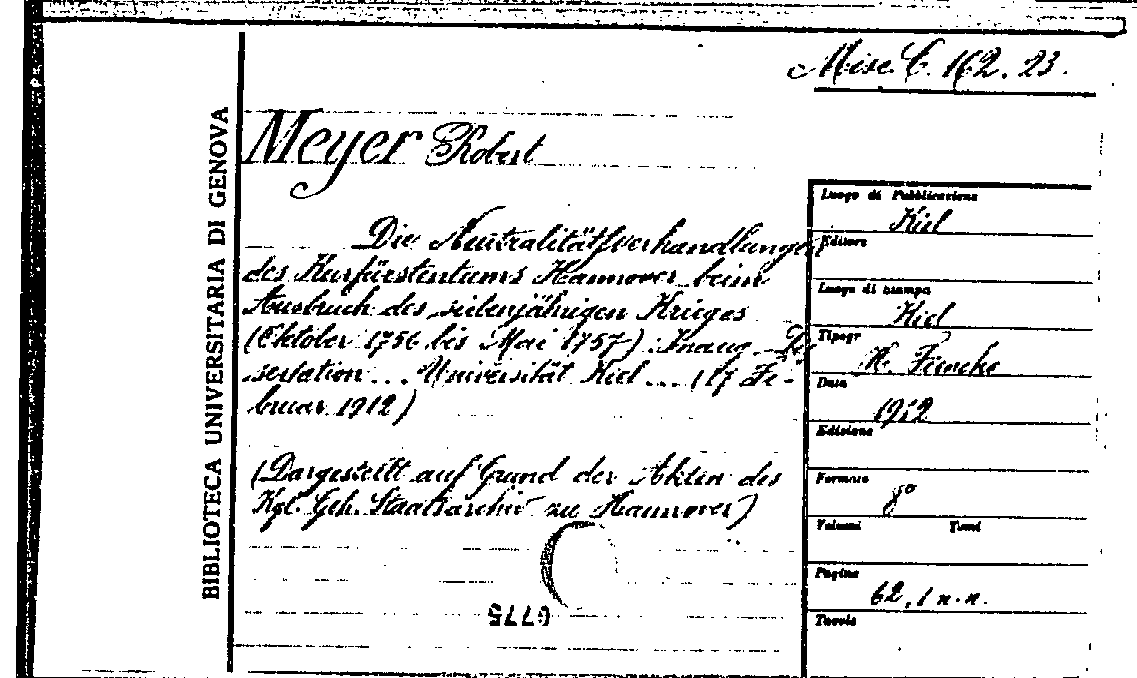 Misc. C. 162. 23.
BIBLIOTECA UNIVERSITARIA DI GENOVA
Meyer Robert
Die Neutralitätsverhandlungen
des Kurfürstentums Hannover beim
Ausbruch des siebenjährigen Krieges
(Oktober 1756 bis Mai 1757). Inaug. Dis
sertation... Universität Kiel... (17 Fe-
bruar 1912)
(Dargestellt auf Grund der Akten des
Kgl. Geh. Staatsarchiv zu Hannover)
0775
Luogo di Pubblicazione
Kiel
Editore
Luogo di stampa
Kiel
Tipogr
Data
1912
Edizione
Formato
8°
Volumi Tomi
Pagine
62, 1 n.n.
Tavole